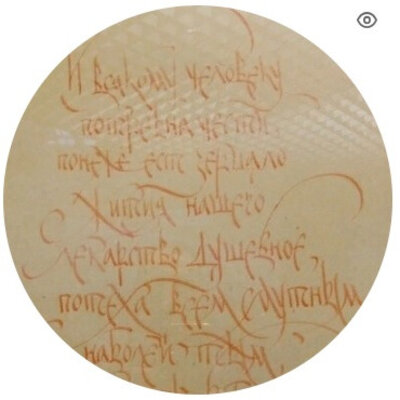 И всякому человеку
потребна чести
понеже ест зерцало
Жития нашего
Лекарство душевное,
потеха всем смутным
наболей тым,